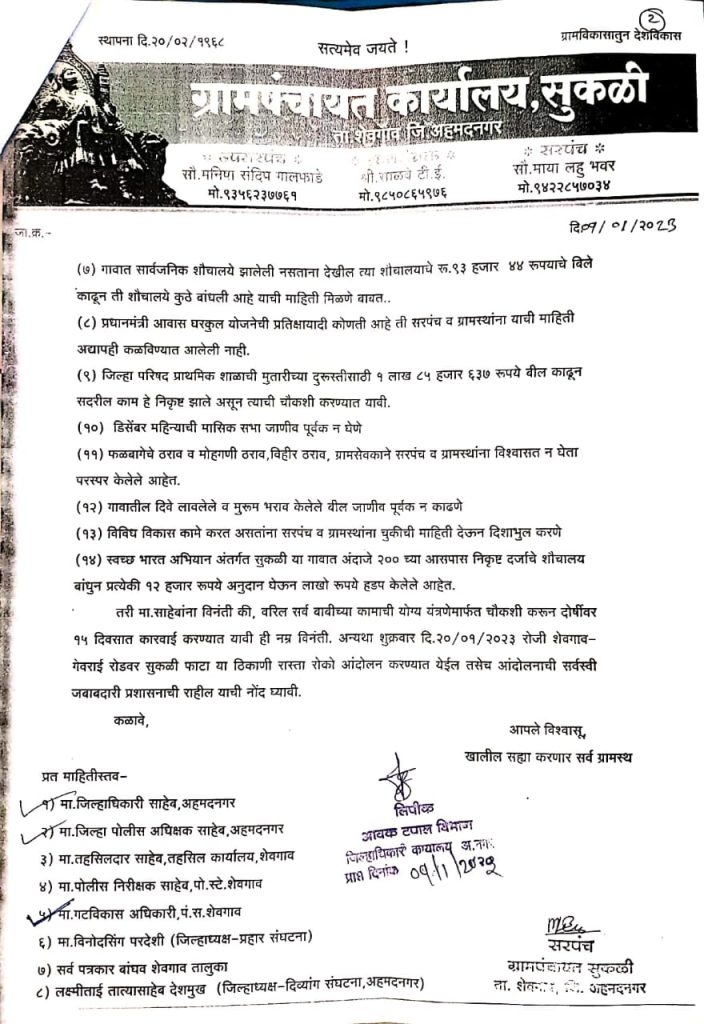 २
स्थापना दि.२०/०२/१९६८
सत्यमेव जयते !
ग्रामविकासातुन देशविकास
ग्रामपंचायत कार्यालय,सुकळी
ता.शेवगाव जि.अहमदनगर
* उपसरपंच *
सौ.मनिषा संदिप गालफाडे
मो.९३५६२३७७६१
श्री.साळवे टी.ई.
मो.९८५०८६५९७६
* सरपंच *
सौ.माया लहु भवर
मो.९४२२८५७०३४
जा.क.-
दि.०९/०१/२०२३
(७) गावात सार्वजनिक शौचालये झालेली नसताना देखील त्या शौचालयाचे रू.९३ हजार ४४ रूपयाचे बिले
काढून ती शौचालये कुठे बांधली आहे याची माहिती मिळणे बाबत..
(८) प्रधानमंत्री आवास घरकुल योजनेची प्रतिक्षायादी कोणती आहे ती सरपंच व ग्रामस्थांना याची माहिती
अद्यापही कळविण्यात आलेली नाही.
(९) जिल्हा परिषद प्राथमिक शाळाची मुतारीच्या दुरूस्तीसाठी १ लाख ८५ हजार ६३७ रूपये बील काढून
सदरील काम हे निकृष्ट झाले असून त्याची चौकशी करण्यात यावी.
(१०) डिसेंबर महिन्याची मासिक सभा जाणीव पूर्वक न घेणे
(११) फळबागेचे ठराव व मोहगणी ठराव,विहीर ठराव, ग्रामसेवकाने सरपंच व ग्रामस्थांना विश्वासत न घेता
परस्पर केलेले आहेत.
(१२) गावातील दिवे लावलेले व मुरूम भराव केलेले बील जाणीव पूर्वक न काढणे
(१३) विविध विकास कामे करत असतांना सरपंच व ग्रामस्थांना चुकीची माहिती देऊन दिशाभुल करणे
(१४) स्वच्छ भारत अभियान अंतर्गत सुकळी या गावात अंदाजे २०० च्या आसपास निकृष्ट दर्जाचे शौचालय
बांधुन प्रत्येकी १२ हजार रूपये अनुदान घेऊन लाखो रूपये हडप केलेले आहेत.
तरी मा.साहेबांना विनंती की, वरिल सर्व बाबीच्या कामाची योग्य यंत्रणेमार्फत चौकशी करून दोर्षीवर
१५ दिवसात कारवाई करण्यात यावी ही नम्र विनंती. अन्यथा शुक्रवार दि.२०/०१/२०२३ रोजी शेवगाव-
गेवराई रोडवर सुकळी फाटा या ठिकाणी रास्ता रोको आंदोलन करण्यात येईल तसेच आंदोलनाची सर्वस्वी
जबाबदारी प्रशासनाची राहील याची नोंद घ्यावी.
कळावे,
आपले विश्वासू,
खालील सह्या करणार सर्व ग्रामस्थ
प्रत माहितीस्तव-
१) मा.जिल्हाधिकारी साहेब,अहमदनगर
२) मा.जिल्हा पोलीस अधिक्षक साहेब,अहमदनगर
३) मा.तहसिलदार साहेब,तहसिल कार्यालय,शेवगाव
४) मा.पोलीस निरीक्षक साहेब,पो.स्टे.शेवगाव
५) मा.गटविकास अधिकारी,पं.स.शेवगाव
६) मा.विनोदसिंग परदेशी (जिल्हाध्यक्ष-प्रहार संघटना)
७) सर्व पत्रकार बांधव शेवगाव तालुका
८) लक्ष्मीताई तात्यासाहेब देशमुख (जिल्हाध्यक्ष-दिव्यांग संघटना,अहमदनगर)
लिपीक
आवक टपाल विभाग
जिल्हाधिकारी कार्यालय अ.नगर
प्राप्त दिनांक ०९/१/२०२३
सरपंच
ग्रामपंचायत सुकळी
ता. शेवगाव, जि. अहमदनगर